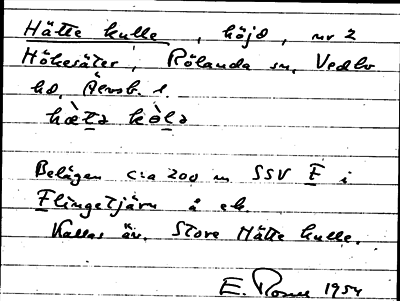 Hätte kulle, höjd, nr 2
Hökesäter, Rölanda sn, Vedbo
hd, Älvsb. l.
Belägen c:a 200 m SSV F i
Flingetjärn å ek.
Kallas äv. Stora Hätte kulle.
E. 1954